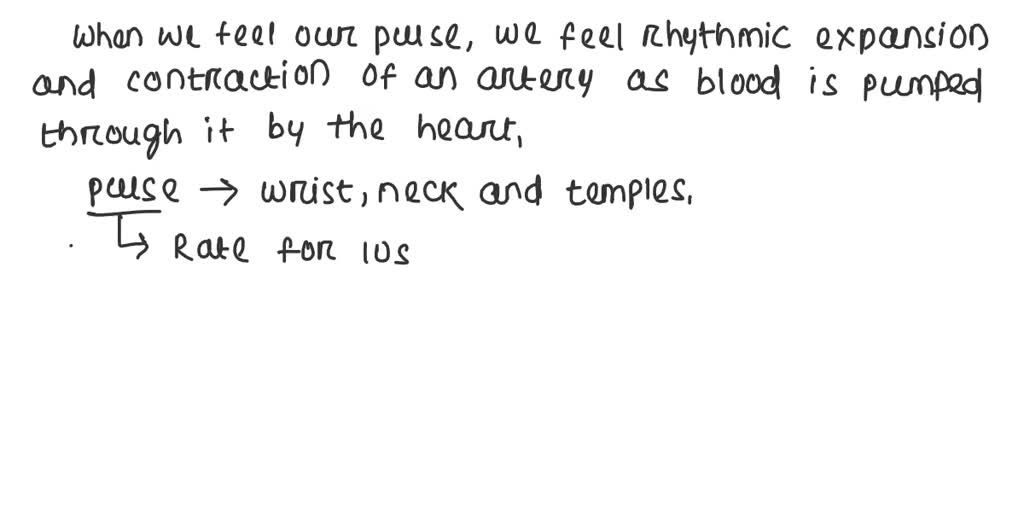 When we feel our pulse, we feel rhythmic expansion
and contraction of an artery as blood is pumped
through it by the heart,
pulse → wrist, neck and temples.
↳ Rate for 10s